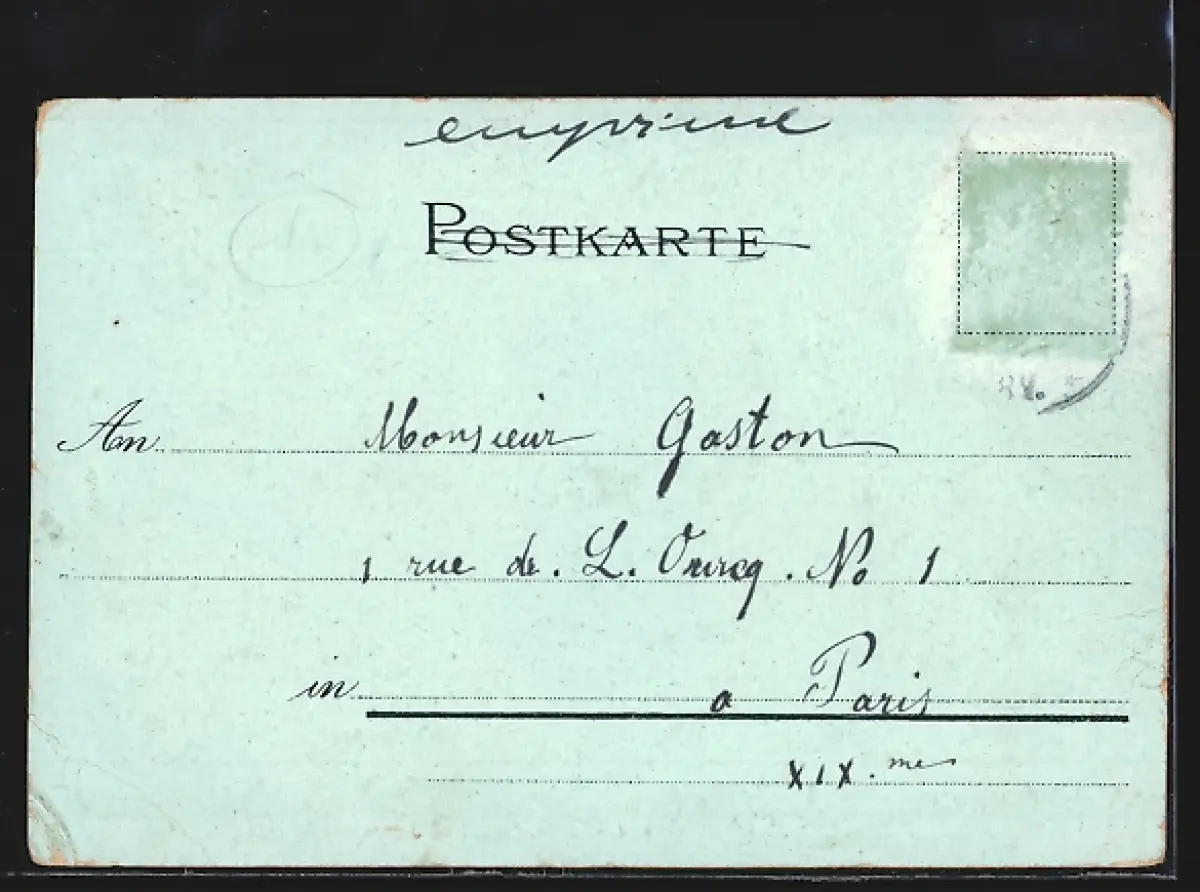 emprime
POSTKARTE
An Monsieur Gaston
1 rue de. L. Ourcq. No 1
in a Paris
XIX.me